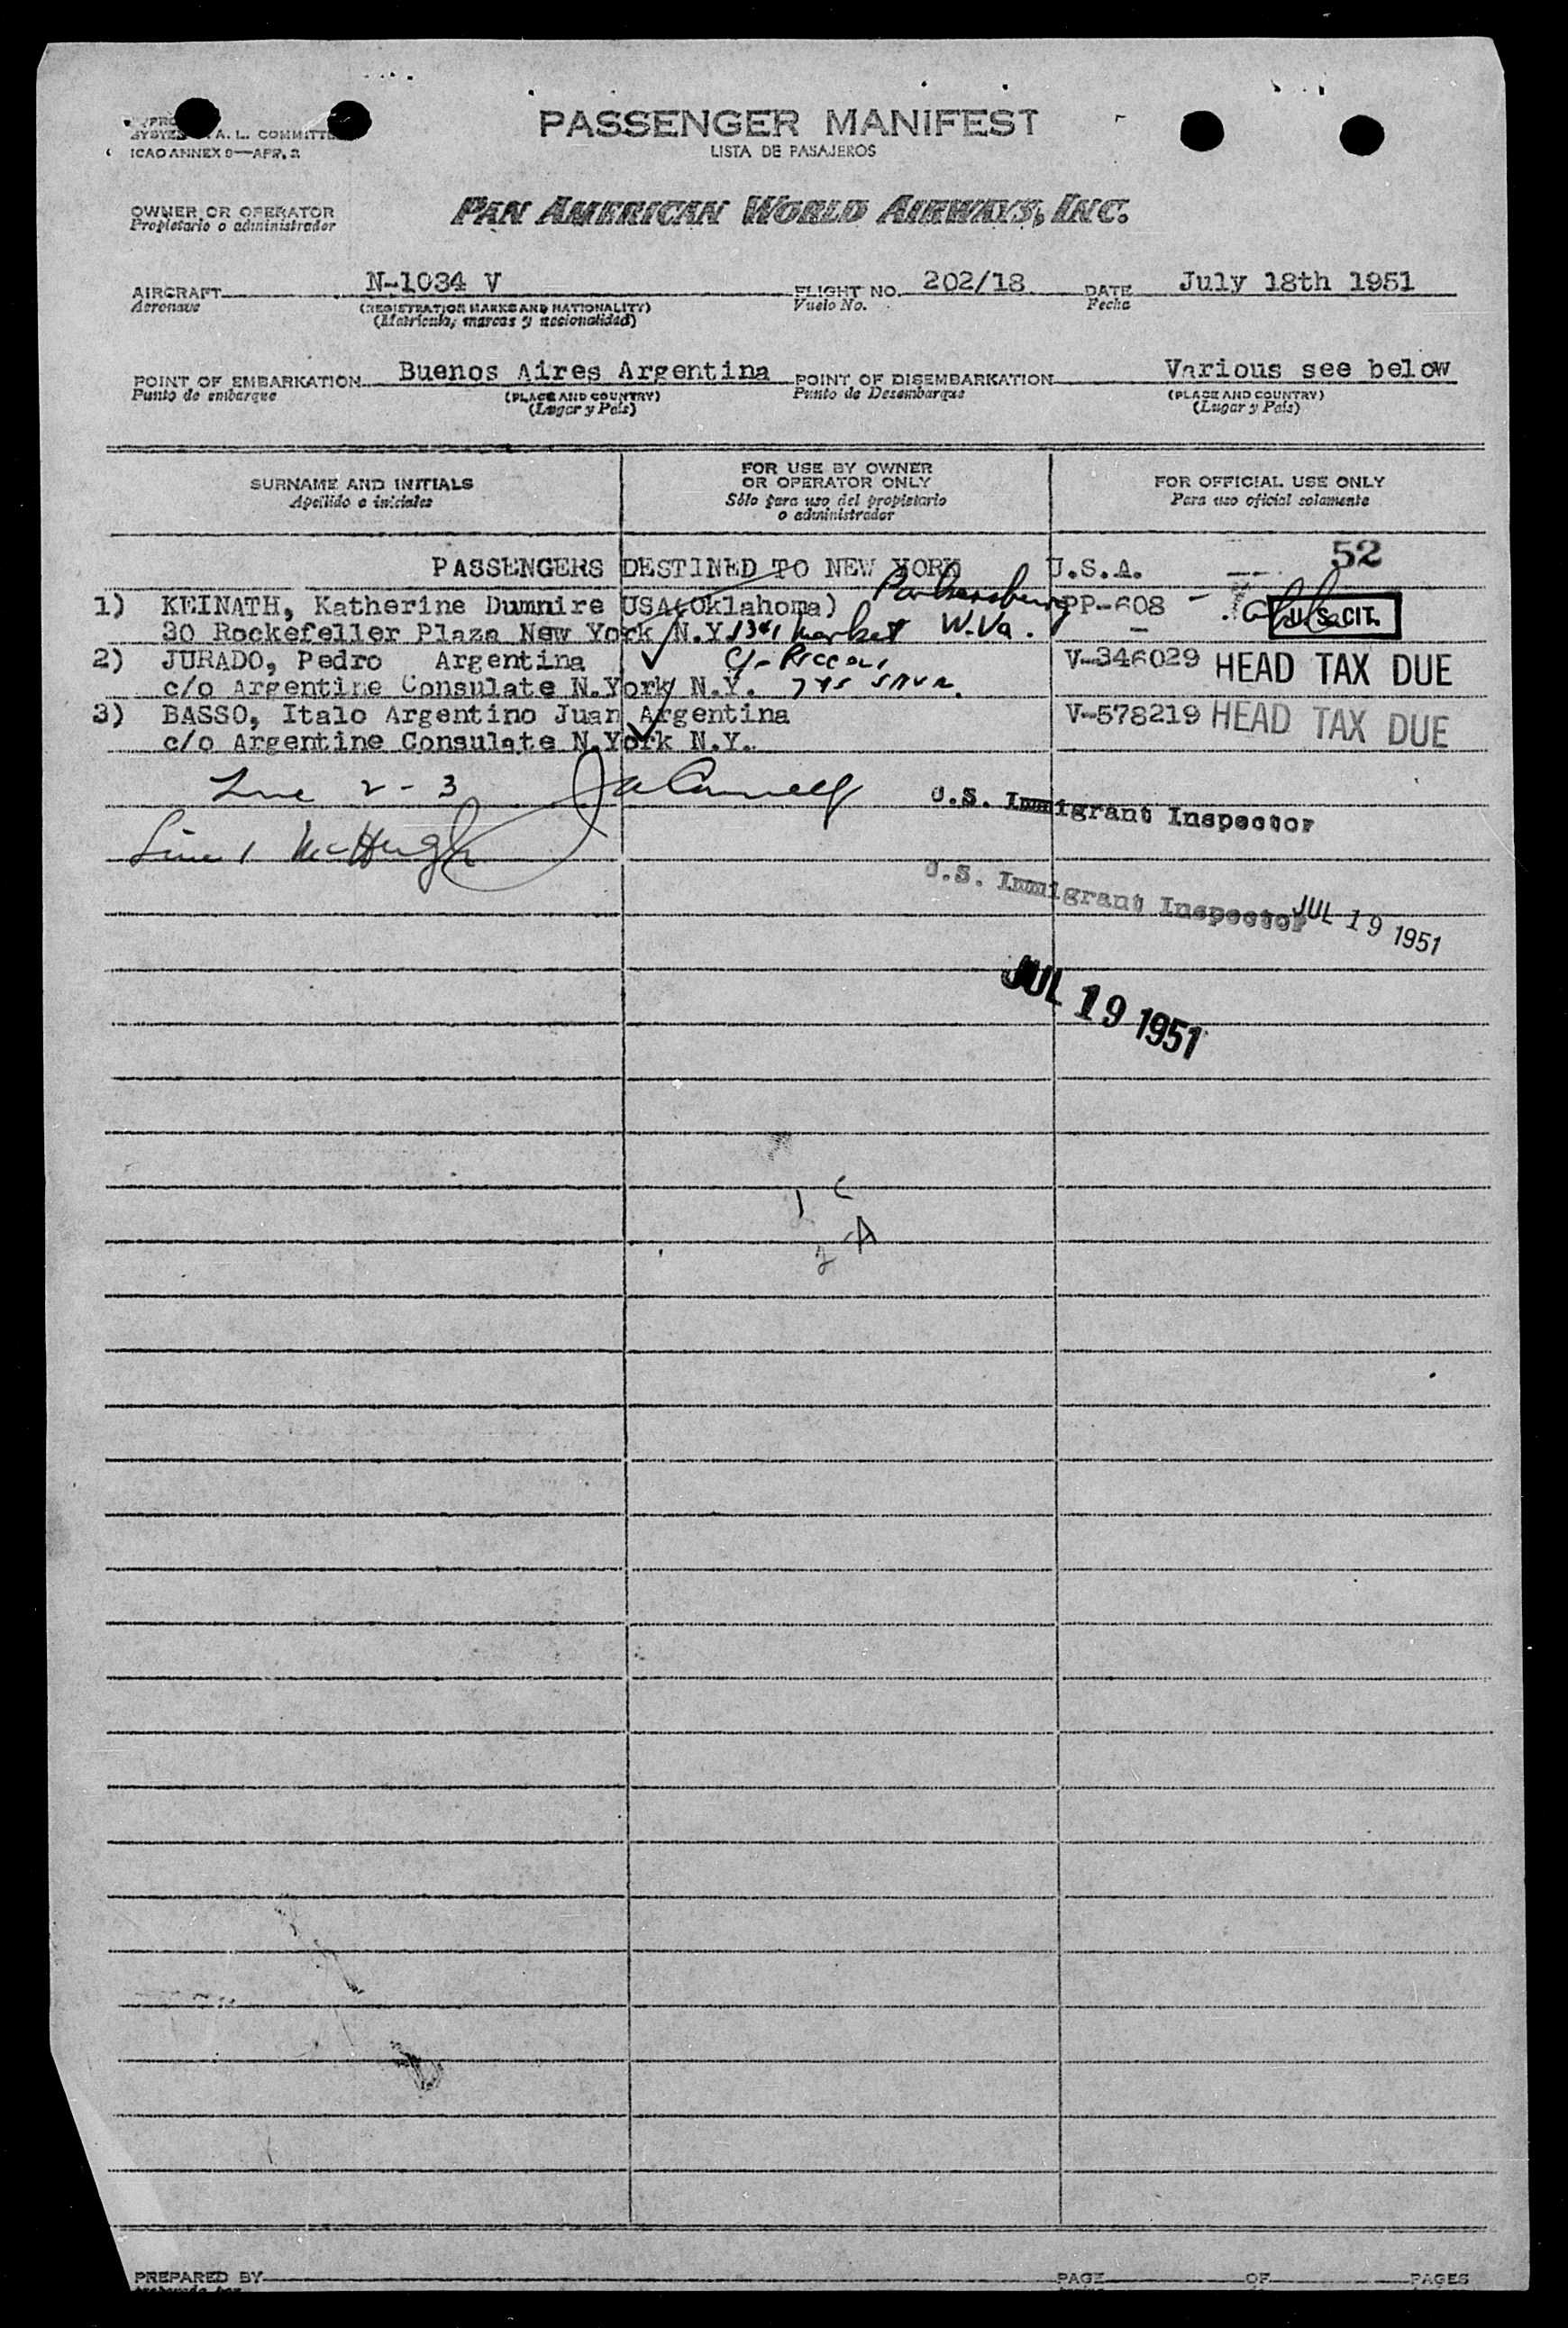 PASSENGER MANIFEST
LISTA DE PASAJEROS
A. L. COMMITTE
ICAO ANNEX 9—APP. 2
OWNER OR OPERATOR
Propietario o administrador
PAN AMERICAN WORLD AIRWAYS, INC.
AIRCRAFT N-1034 V FLIGHT NO. 202/18 DATE July 18th 1951
Aeronave (REGISTRATION MARKS AND NATIONALITY) Vuelo No. Fecha
(Matrícula, marcas y nacionalidad)
POINT OF EMBARKATION Buenos Aires Argentina POINT OF DISEMBARKATION Various see below
Punto de embarque (PLACE AND COUNTRY) Punto de Desembarque (PLACE AND COUNTRY)
(Lugar y País) (Lugar y País)
SURNAME AND INITIALS FOR USE BY OWNER OR OPERATOR ONLY FOR OFFICIAL USE ONLY
Apellido e iniciales Sólo para uso del propietario o administrador Para uso oficial solamente
PASSENGERS DESTINED TO NEW YORK U.S.A. 52
1) KEINATH, Katherine Dumnire USA(Oklahoma) Parkersburg PP-608 - U.S. CIT.
30 Rockefeller Plaza New York N.Y. 1341 Market W.Va.
2) JURADO, Pedro Argentina V-346029 HEAD TAX DUE
c/o Argentine Consulate N.York N.Y. 745
3) BASSO, Italo Argentino Juan Argentina V-578219 HEAD TAX DUE
c/o Argentine Consulate N.York N.Y.
Line 2-3
U.S. Immigrant Inspector
Line 1 McHugh
U.S. Immigrant Inspector JUL 19 1951
JUL 19 1951
1 C
2 A
PREPARED BY PAGE OF PAGES